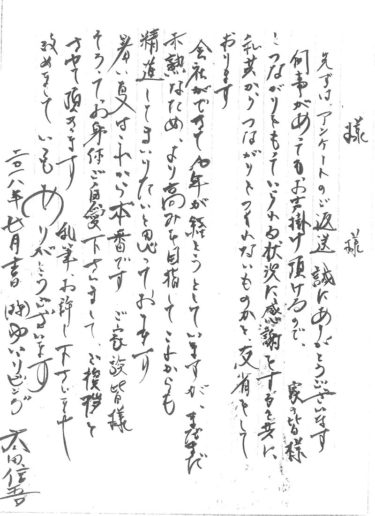 様
様
先ずは、アンケートのご返送 誠にありがとうございます
何事があってもお声掛け頂ける 家の皆様
つながりをもっていられる状況に感謝をすると共に、
私共からつながりを のかと反省をして
おります
会社ができて 年が経とうとしていますが、まだまだ
未熟なため、より高みを目指してこれからも
精進してまいりたいと思っております
暑い夏はこれから本番です ご家族皆様
そろってお身体ご自愛下さいまして、ご挨拶と
させて頂きます 乱筆、お許し下さいませ
改めまして いつも ありがとうございます
二〇一八年七月吉日 リビング 太田信吾